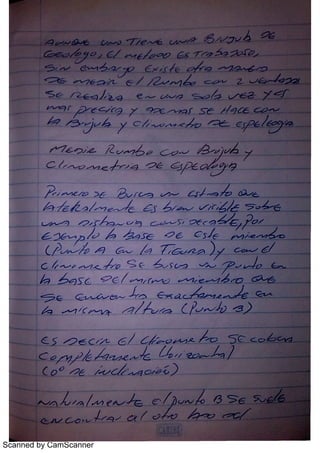 Aunque uno tiene una Brujula de
Geologo, el metodo es trabajoso,
Sin embargo existe otra manera
de medir el Rumbo con 2 ventajas
se realiza en una sola vez y es
mas precisa y ademas se hace con
la Brujula y clinometro de espeleogia
Medir Rumbo con Brujula y
Clinometria de Espeologia
Primero se Busca un estrato que
lateralmente es bien visible sobre
una distancia considerable, por
Ejemplo la base de este miembro
(Punto A en la Figura) y con el
clinometro se busca un punto en
la base del mismo miembro que
se encuentra exactamente en
la misma altura (Punto B)
Es decir el clinometro se coloca
completamente horizontal
(0° de inclinación)
Naturalmente el punto B se suele
encontrar al otro lado del
Scanned by CamScanner